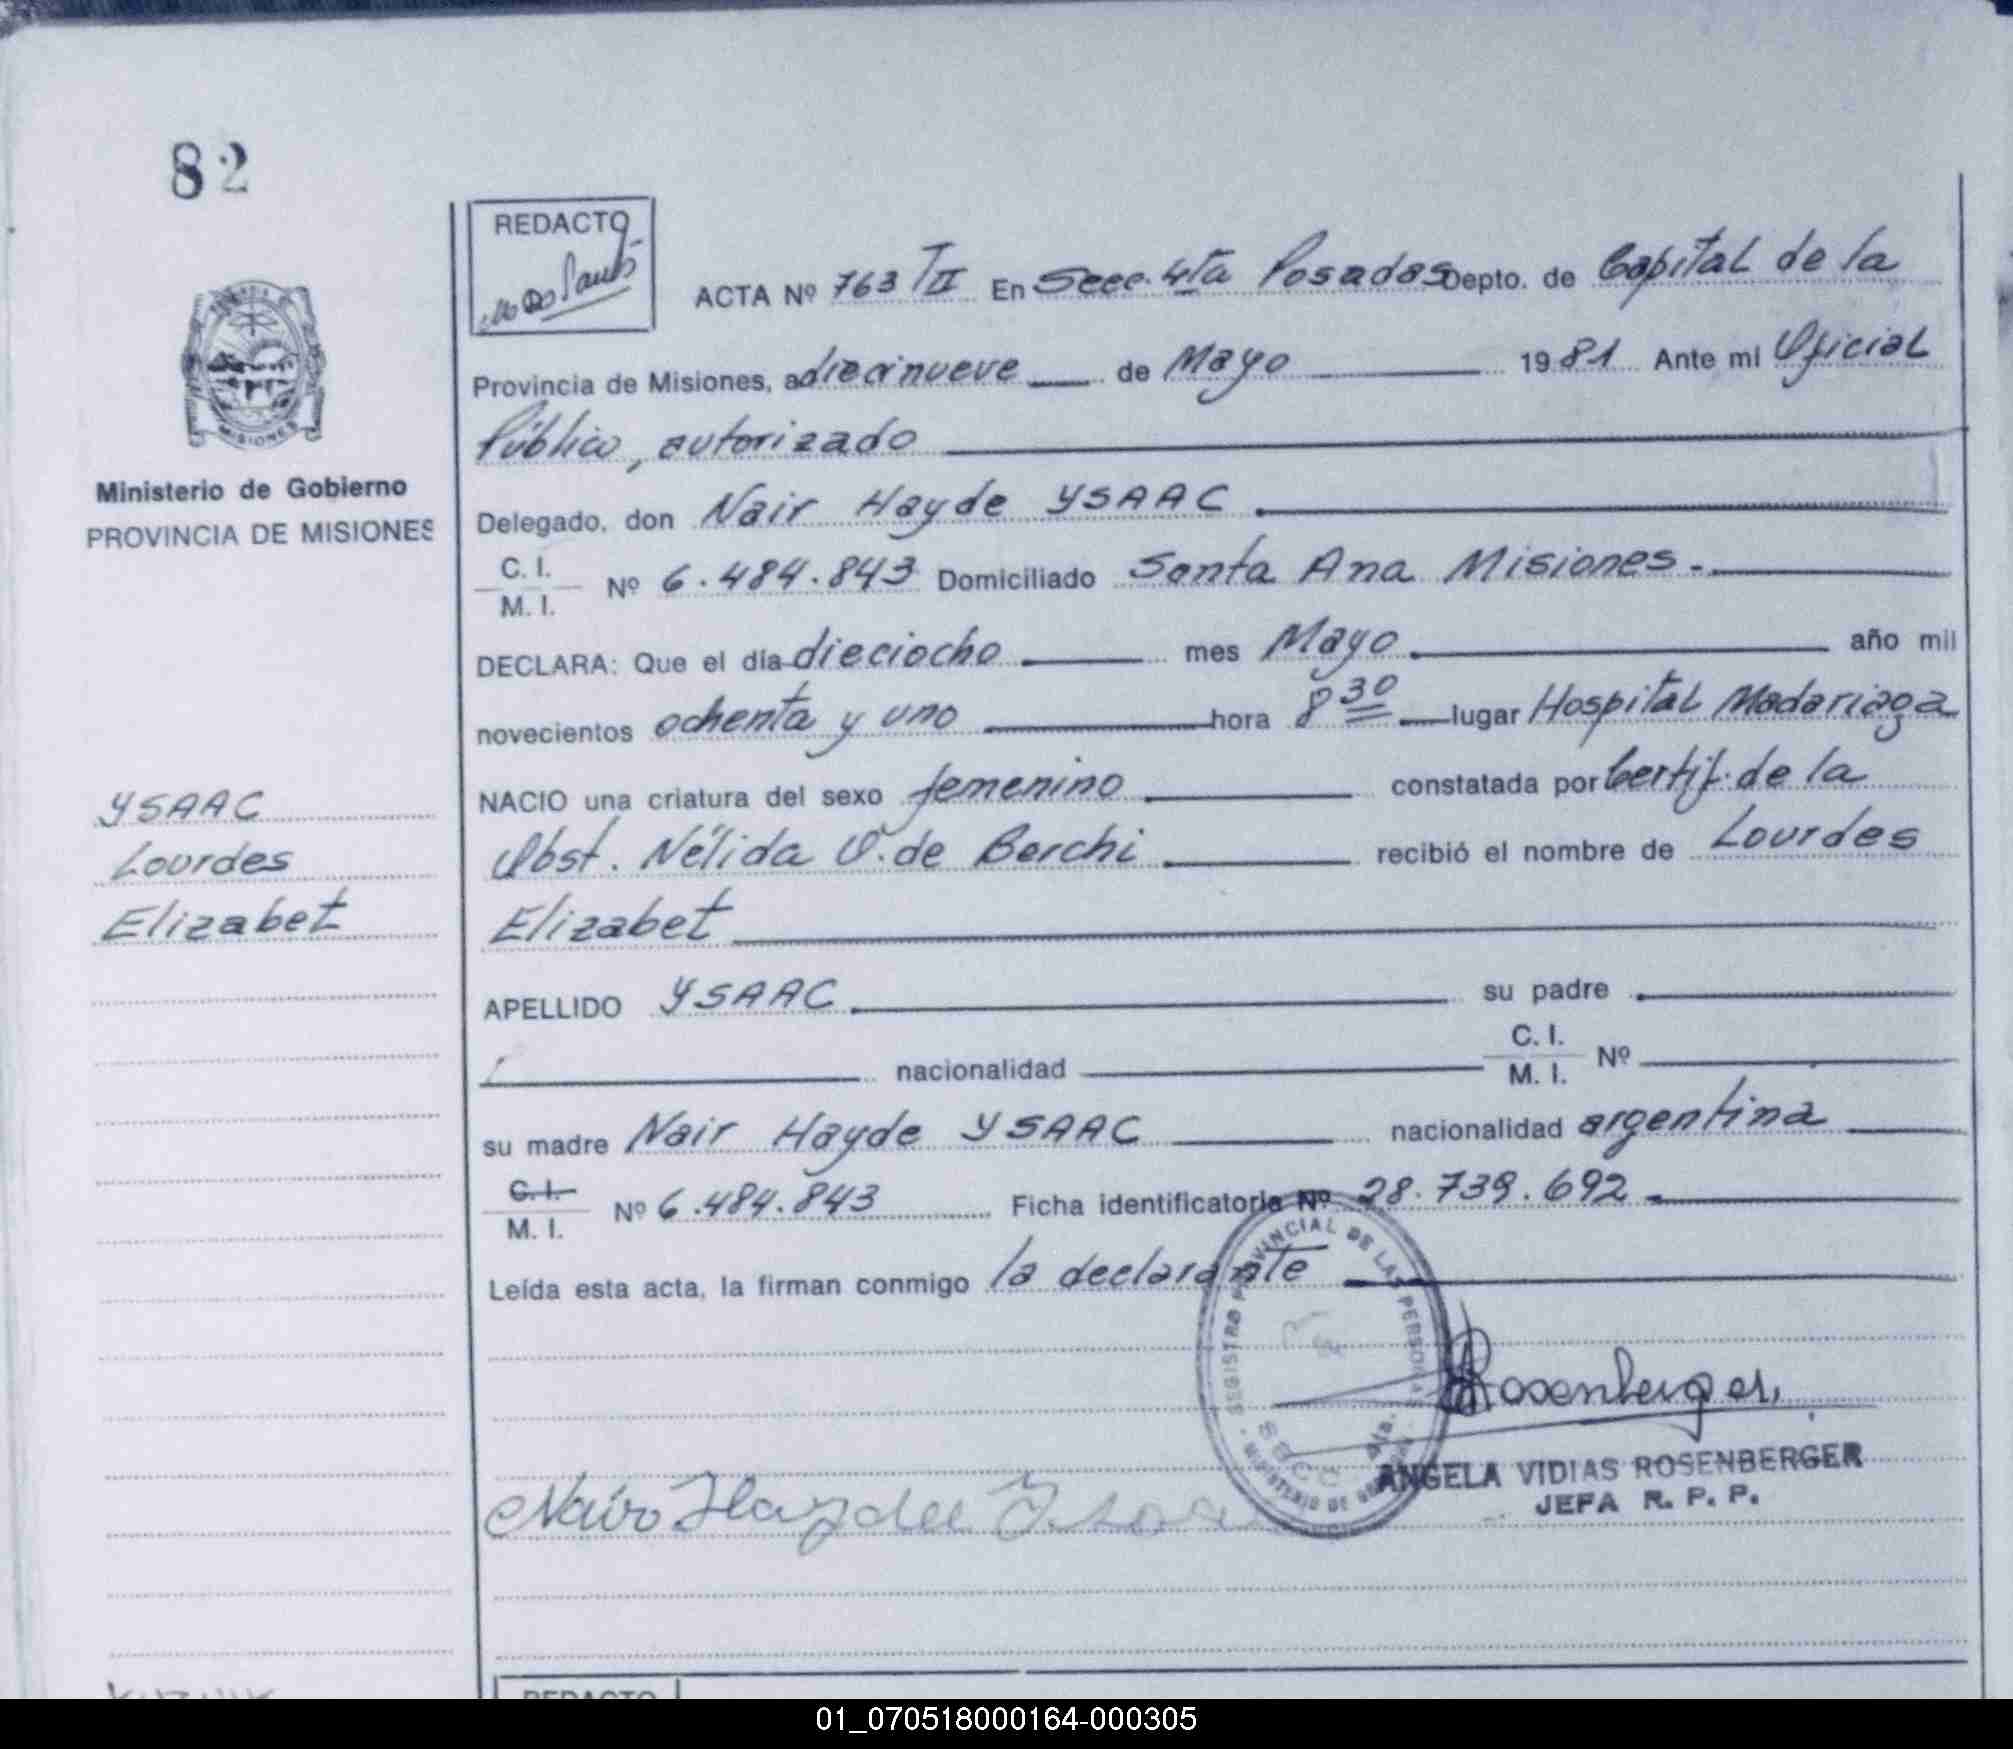 82
REDACTO
ACTA Nº 763 TII En Secc. 4ta Posadas Depto. de Capital de la
Provincia de Misiones, a diecinueve de Mayo 1981 Ante mi Oficial
Público, autorizado
MISIONES
Ministerio de Gobierno
PROVINCIA DE MISIONES
Delegado, don Nair Hayde YSAAC
C. I.
M. I. Nº 6.484.843 Domiciliado Santa Ana Misiones.-
DECLARA: Que el día dieciocho mes Mayo año mil
novecientos ochenta y uno hora 8 30 lugar Hospital Madariaga
NACIO una criatura del sexo femenino constatada por Certif. de la
Obst. Nélida O. de Berchi recibió el nombre de Lourdes
Elizabet
YSAAC
Lourdes
Elizabet
APELLIDO YSAAC su padre
nacionalidad C. I.
M. I. Nº
su madre Nair Hayde YSAAC nacionalidad argentina
C. I.
M. I. Nº 6.484.843 Ficha identificatoria Nº 28.739.692
Leída esta acta, la firman conmigo la declarante
REGISTRO PROVINCIAL DE LAS PERSONAS
SECC. 4ta.
MINISTERIO DE
Rosenberger
ANGELA VIDIAS ROSENBERGER
JEFA R. P. P.
Nair Haydee
REDACTO
01_070518000164-000305